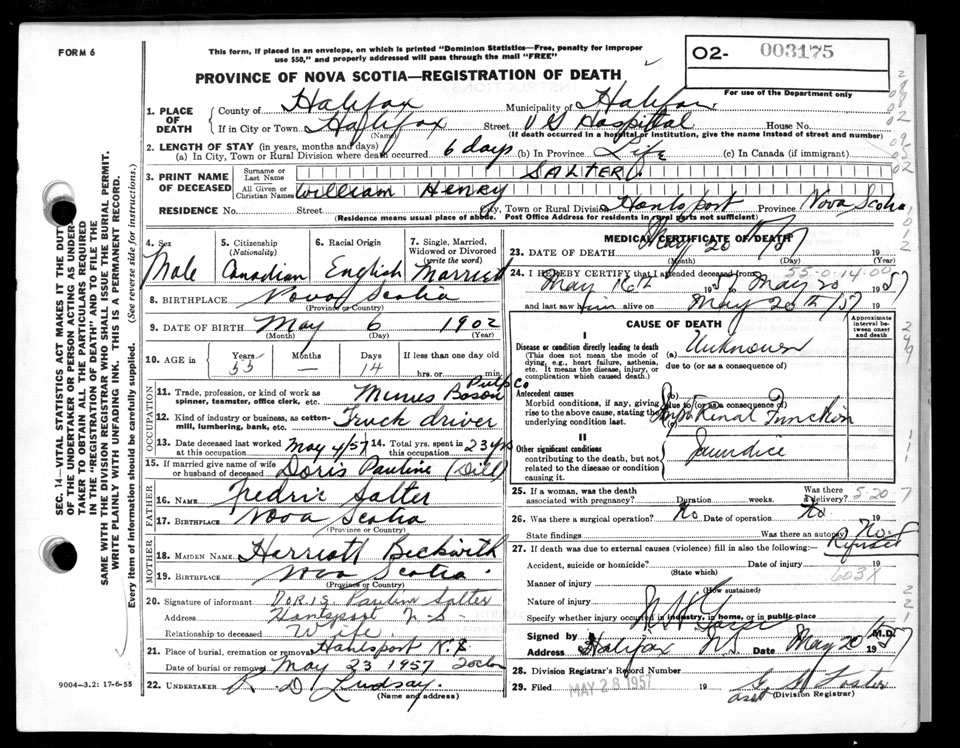 FORM 6
This form, if placed in an envelope, on which is printed "Dominion Statistics—Free, penalty for improper
use $50," and properly addressed will pass through the mail "FREE"
O2- 003175
For use of the Department only
PROVINCE OF NOVA SCOTIA—REGISTRATION OF DEATH
1. PLACE OF DEATH
County of Halifax Municipality of Halifax
If in City or Town Halifax Street V G Hospital House No.
(Name) (If death occurred in a hospital or institution, give the name instead of street and number)
2. LENGTH OF STAY (in years, months and days)
(a) In City, Town or Rural Division where death occurred 6 days (b) In Province Life (c) In Canada (if immigrant)
3. PRINT NAME OF DECEASED
Surname or Last Name SALTER
All Given or Christian Names William Henry
RESIDENCE No. Street City, Town or Rural Division Hantsport Province Nova Scotia
(Residence means usual place of abode. Post Office Address for residents in rural parts not sufficient)
4. Sex Male
5. Citizenship (Nationality) Canadian
6. Racial Origin English
7. Single, Married, Widowed or Divorced (write the word) Married
8. BIRTHPLACE Nova Scotia
(Province or Country)
9. DATE OF BIRTH May 6 1902
(Month) (Day) (Year)
10. AGE in Years 55 Months — Days 14 If less than one day old
hrs. or min.
OCCUPATION
11. Trade, profession, or kind of work as spinner, teamster, office clerk, etc. Pulp Co
12. Kind of industry or business, as cotton-mill, lumbering, bank, etc. Truck driver
13. Date deceased last worked at this occupation May 4/57 14. Total yrs. spent in this occupation 23 yrs
15. If married give name of wife or husband of deceased Doris Pauline (Dill)
FATHER
16. NAME Fredric Salter
17. BIRTHPLACE Nova Scotia
(Province or Country)
MOTHER
18. MAIDEN NAME Harriott Beckwith
19. BIRTHPLACE Nova Scotia
(Province or Country)
20. Signature of informant Doris Paulin Salter
Address Hantsport N.S.
Relationship to deceased Wife
21. Place of burial, cremation or removal Hantsport N.S.
Date of burial or removal May 23 1957
22. UNDERTAKER R. D. Lindsay
(Name and address)
9004-3.2: 17-6-55
MEDICAL CERTIFICATE OF DEATH
23. DATE OF DEATH May 20 19
(Month) (Day)
55-0-14-00
24. I HEREBY CERTIFY that I attended deceased from
May 16th 19 to May 20 1957
and last saw him alive on May 20th 1957
CAUSE OF DEATH
Approximate interval between onset and death
I
Disease or condition directly leading to death
(This does not mean the mode of dying, e.g., heart failure, asthenia, etc. It means the disease, injury, or complication which caused death.)
(a) Unknown
due to (or as a consequence of)
Antecedent causes
Morbid conditions, if any, giving rise to the above cause, stating the underlying condition last.
(b)
due to (or as a consequence of)
(c) Renal Function
II
Other significant conditions
contributing to the death, but not related to the disease or condition causing it.
Jaundice
25. If a woman, was the death associated with pregnancy? Duration weeks. Was there a delivery? 5-20-7
26. Was there a surgical operation? No Date of operation 19
State findings Was there an autopsy? No
27. If death was due to external causes (violence) fill in also the following:—
Accident, suicide or homicide? Date of injury 19
(State which)
603X
Manner of injury
(How sustained)
Nature of injury
Specify whether injury occurred in industry, in home, or in public place
Signed by M.D.
Address Halifax N.S. Date May 20 1957
28. Division Registrar's Record Number
29. Filed MAY 28 1957 19 Foster
asst (Division Registrar)
SEC. 14—VITAL STATISTICS ACT MAKES IT THE DUTY
OF THE UNDERTAKER OR PERSON ACTING AS UNDER-
TAKER TO OBTAIN ALL THE PARTICULARS REQUIRED
IN THE "REGISTRATION OF DEATH" AND TO FILE THE
SAME WITH THE DIVISION REGISTRAR WHO SHALL ISSUE THE BURIAL PERMIT.
WRITE PLAINLY WITH UNFADING INK. THIS IS A PERMANENT RECORD.
Every item of information should be carefully supplied. (See reverse side for instructions.)